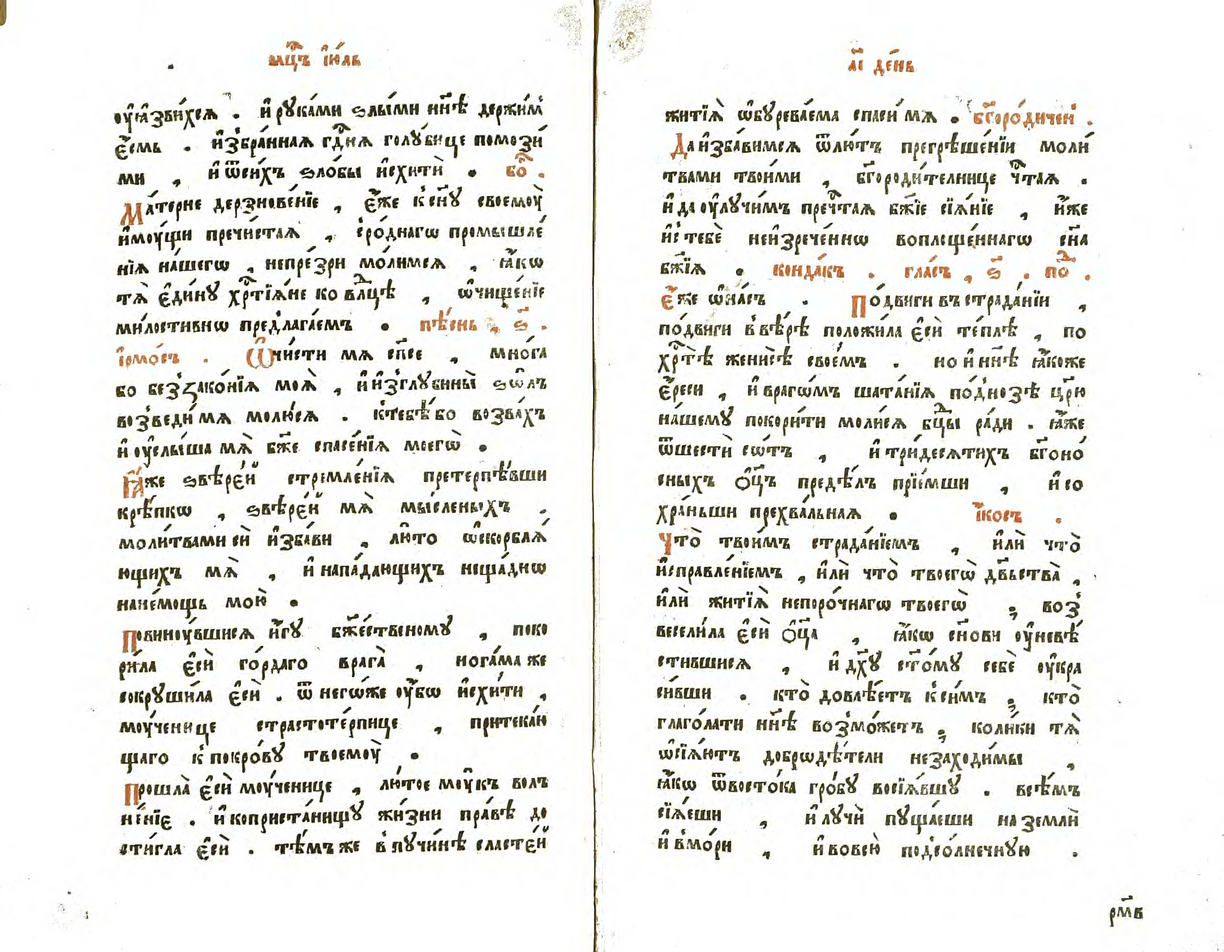 мцⷭ҇ъ і҆ю́ль
оу҆ѧзви́хсѧ . и҆ рꙋка́ми ѕлы́ми нн҃ѣ держи́м̾
є҆́смь . и҆збра́ннаѧ гдⷭ҇нѧ голꙋ́бице помози́
ми , и҆ ѿси́хъ ѕло́бы и҆схитѝ . бо҃ .
Ма́терне дерзнове́нїе , є҆́же к̾ сн҃ꙋ своемоу̀
и҆моу́щи пречи́стаѧ , сро́днагѡ промышле́
нїѧ на́шегѡ , непре́зри мо́лимсѧ , ꙗ҆́кѡ
тѧ̀ є҆ди́нꙋ хрⷭ҇тїѧ́не ко влⷣцѣ , ѡ҆чище́нїе
ми́лостивнѡ предлага́емъ . пѣ́снь , ѕ҃ .
і҆рмо́съ . Ѡ҆чи́сти мѧ сп҃се , мно́га
бо беззако́нїѧ моѧ̀ , и҆ и҆зглꙋбины̀ ѕѡ́лъ
возведи́ мѧ молю́сѧ . к̾тебѣ́ бо возва́хъ
и҆ оу҆слы́ша мѧ̀ бж҃е спасе́нїѧ моегѡ̀ .
Ꙗ҆́же ѕвѣре́й стремле́нїѧ претерпѣ́вши
крѣ́пкѡ , ѕвѣре́й мѧ̀ мы́сленыхъ .
моли́твами си́ и҆зба́ви , лю́то ѡ҆скорблѧ́
ющихъ мѧ̀ , и҆ напа́дающихъ неща́днѡ
нане́мощь мою̀ .
Повинꙋ́вшисѧ и҆́гꙋ бжⷭ҇е́ственомꙋ , поко
ри́ла є҆сѝ го́рдаго врага̀ , нога́ма же
сокрꙋши́ла є҆сѝ . ѿ негѡ́же оу҆́бѡ и҆схи́ти ,
моу́ченице страстоте́рпице , притека́ю
щаго к̾ покро́вꙋ твоемоу̀ .
Прошла̀ є҆сѝ моу́ченице , лю́тое моу́къ волъ
не́нїе . и҆ копристанищꙋ жи́зни пра́вѣ до
сти́гла є҆сѝ . тѣ́мъ же в̾ пꙋчи́нѣ сласте́й
а҃і де́нь
житїѧ̀ ѡ҆бꙋрева́ема спаси́ мѧ . бг҃оро́диченъ .
Да и҆зба́вимсѧ ѿлю́тъ прегрѣше́нїи моли́
твами твои́ми , бг҃ороди́телнице чⷭ҇таѧ .
и҆ да оу҆лꙋчи́мъ пречⷭ҇таѧ бж҃їе сїѧ́нїе , и҆́же
и҆с̾тебѐ неи҆зрече́ннѡ воплоще́ннагѡ сн҃а
бж҃їѧ . конда́къ . гла́съ , ѕ҃ . поⷣ .
Є҆́же ѡ҆на́съ . По́двиги въ страда́нїи ,
по́двиги в̾вѣ́рѣ положи́ла є҆сѝ те́плѣ , по
хрⷭ҇тѣ̀ женисѣ̀ свое́мъ . но и҆ нн҃ѣ ꙗ҆́коже
є҆́реси , и҆ врагѡ́мъ шата́нїѧ по́дно́зѣ цр҃ю
на́шемꙋ покори́ти моли́сѧ бц҃ы ра́ди . ꙗ҆́же
ѿшести́ со́тъ , и҆ тридесѧти́хъ бг҃оно́
сныхъ ѻ҆ц҃ъ предѣ́лъ прїе́мши , и҆ со
хра́ньши прехва́льнаѧ . і҆́косъ .
Что̀ твои́мъ страда́нїемъ , и҆лѝ что̀
и҆справле́нїемъ , и҆лѝ что̀ твоегѡ̀ дв҃ьства̀ ,
и҆лѝ житїѧ̀ непоро́чнагѡ твоегѡ̀ ; воз̾
весели́ла є҆сѝ ѻ҆ц҃а̀ , ꙗ҆́кѡ сн҃ови оу҆невѣ́
стившисѧ , и҆ дх҃ꙋ ст҃о́мꙋ себѐ оу҆кра
си́вши . кто̀ довлѣ́етъ к̾ си́мъ , кто̀
глаго́лати нн҃ѣ возмо́жетъ ; коли́ки тѧ̀
ѡ҆сїѧ́ютъ добрѡдѣ́тели незаходи́мы ,
ꙗ҆́кѡ ѿвосто́ка гро́бꙋ восїѧ́вшꙋ . всѣ́мъ
сїѧ́еши , и҆ лꙋчѝ пꙋща́еши на землѝ
и҆ в̾мо́ри , и҆ вовсю̀ подсо́лнечнꙋю .
рм҃в